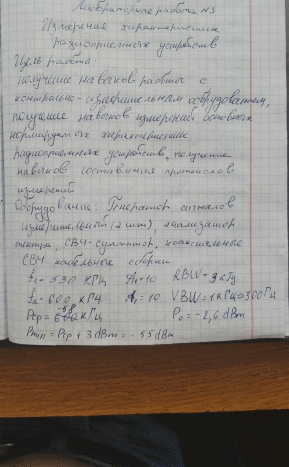 Лабораторная работа №3
Измерение характеристик
радиоприемных устройств
Цель работы:
Получение навыков работы с
контрольно-измерительным оборудованием,
получение навыков измерения основных
нормируемых характеристик
радиоприемных устройств, получение
навыков составления протоколов
измерений
Оборудование: Генератор сигналов
измерительный (2 шт), анализатор
спектра, СВЧ-сумматор, коаксиальные
СВЧ кабельные сборки
f₁ = 530 кГц A₁=10 RBW=3кГц
f₂ = 600 кГц A₁=10 VBW=1кГц→300Гц
Pср = -58 кГц P₀=-2,6 dBm
Pmin = Pср + 3 dBm = -55 dBm